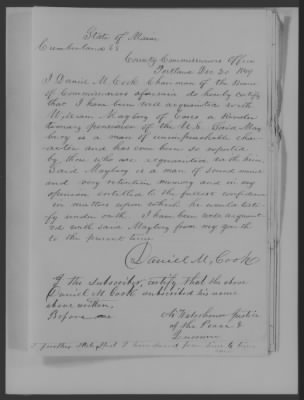 State of Maine
Cumberland SS
County Commissioners Office
Portland Dec 20 1849
I Daniel M. Cook Chairman of the Board
of Commissioners aforesaid do hereby certify
that I have been well acquainted with
William Maybery of Casco a Revolu
tionary pensioner of the U.S. Said May
bery is a man of unimpeachable char
acter and has ever been so reputed
by those who are acquainted with him.
Said Maybery is a man of sound mind
and very retentive memory and in my
opinion entitled to the fullest confidence
in matters upon which he would testi
fy under oath. I have been well acquaint
ed with said Maybery from my youth
to the present time
Daniel M. Cook
I the subscriber, certify that the above
Daniel M. Cook subscribed his name
above written.
Before me
Justice
of the Peace &
Quorum
I further state that I from time to time